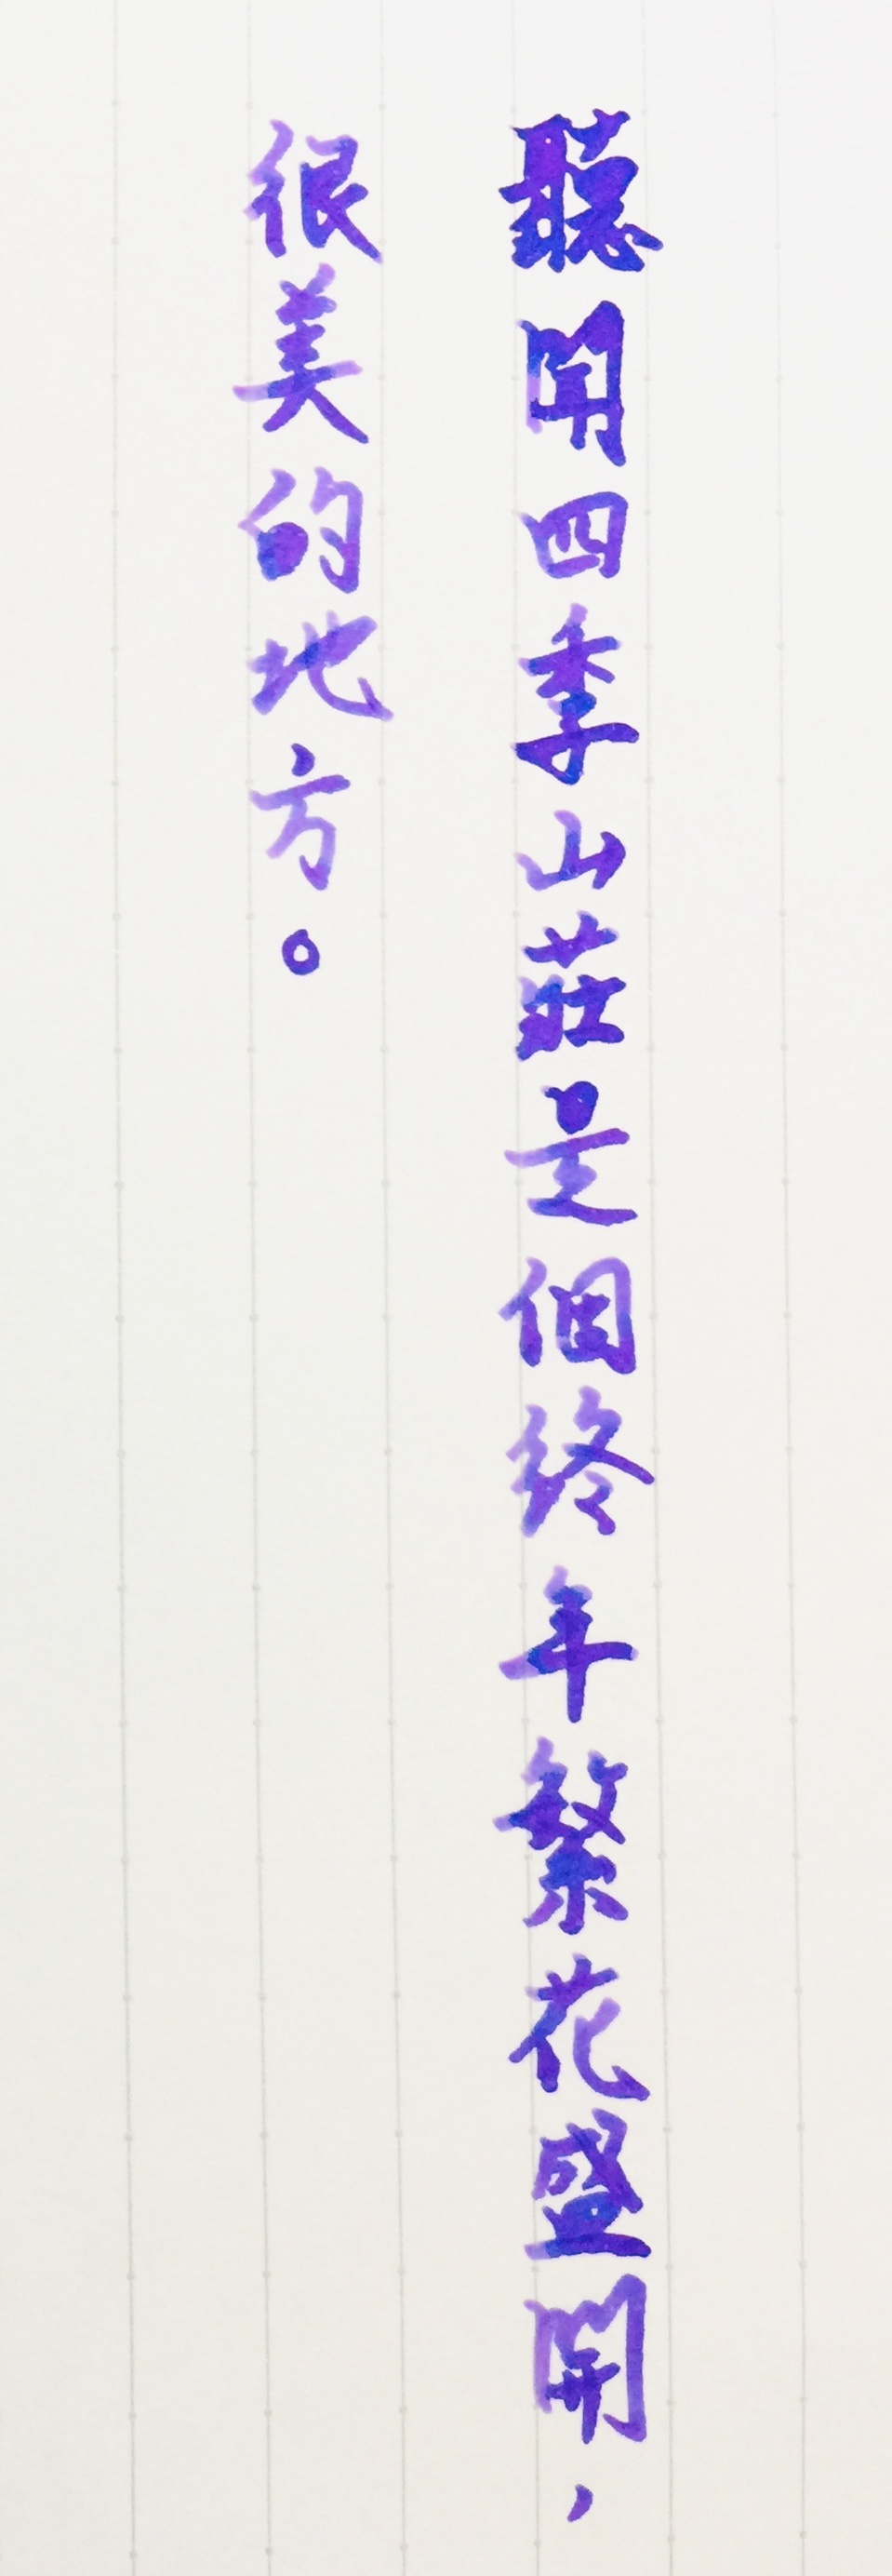 聽聞四季山莊是個終年繁花盛開，
很美的地方。